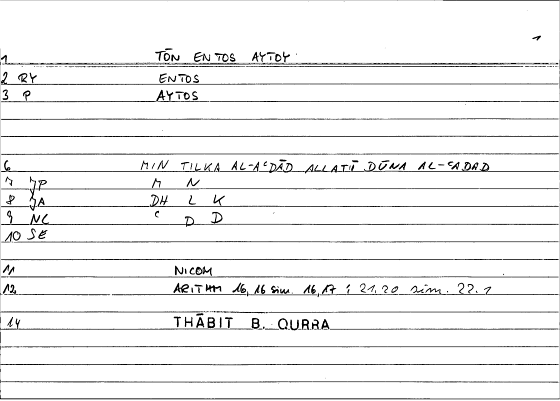 1
1 TŌN ENTOS AYTOY
2 RY ENTOS
3 P AYTOS
6 MIN TILKA AL-AᶜDĀD ALLATĪ DŪNA AL-ᶜADAD
7 JP M N
8 JA DH L K
9 NC ᶜ D D
10 SE
11 NICOM
12 ARITHM 16,16 sim. 16,17 ; 21.20 sim. 22.1
14 THĀBIT B. QURRA